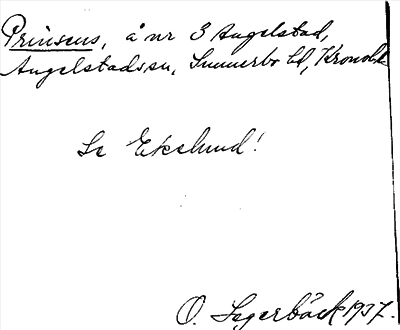 Prinsens, å nr 3 Angelstad,
Angelstads sn, Sunnerbo hd, Kronob.
Se Ekelund!
O. Segerbäck 1937.